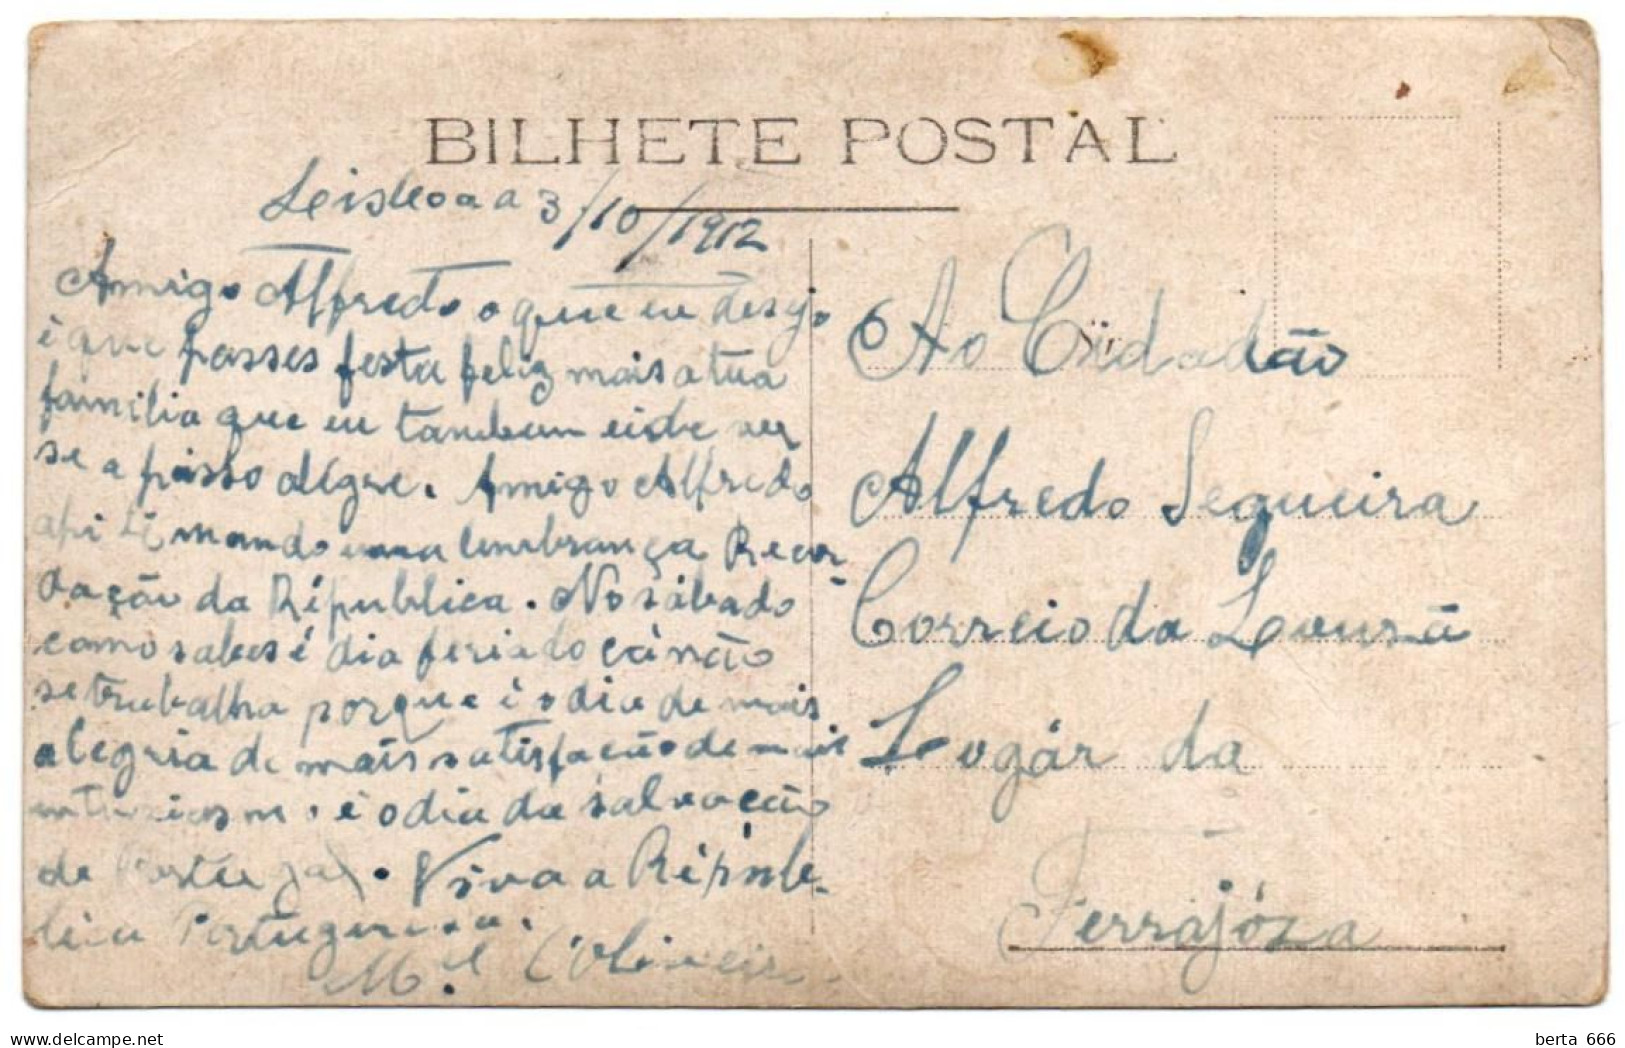 BILHETE POSTAL
Leisboa a 3/10/1912
Amigo Alfredo o que eu desejo
é que passes festa feliz mais a tua
familia que eu tambem eide ver
se a passo alegre. Amigo Alfredo
api ti mando uma lembrança Recor-
dação da Républica. No sábado
como sabes é dia feriado cá não
se trabalha porque é o dia de mais
alegria de mais satisfação de mais
intusiasm. é o dia da salvação
de Portugal. Viva a Républe-
lica Portugueza.
M.el C. Oliveira
Ao Cidadão
Alfredo Sequeira
Correio da Lousã
Logár da
Ferrajóza
berta 666